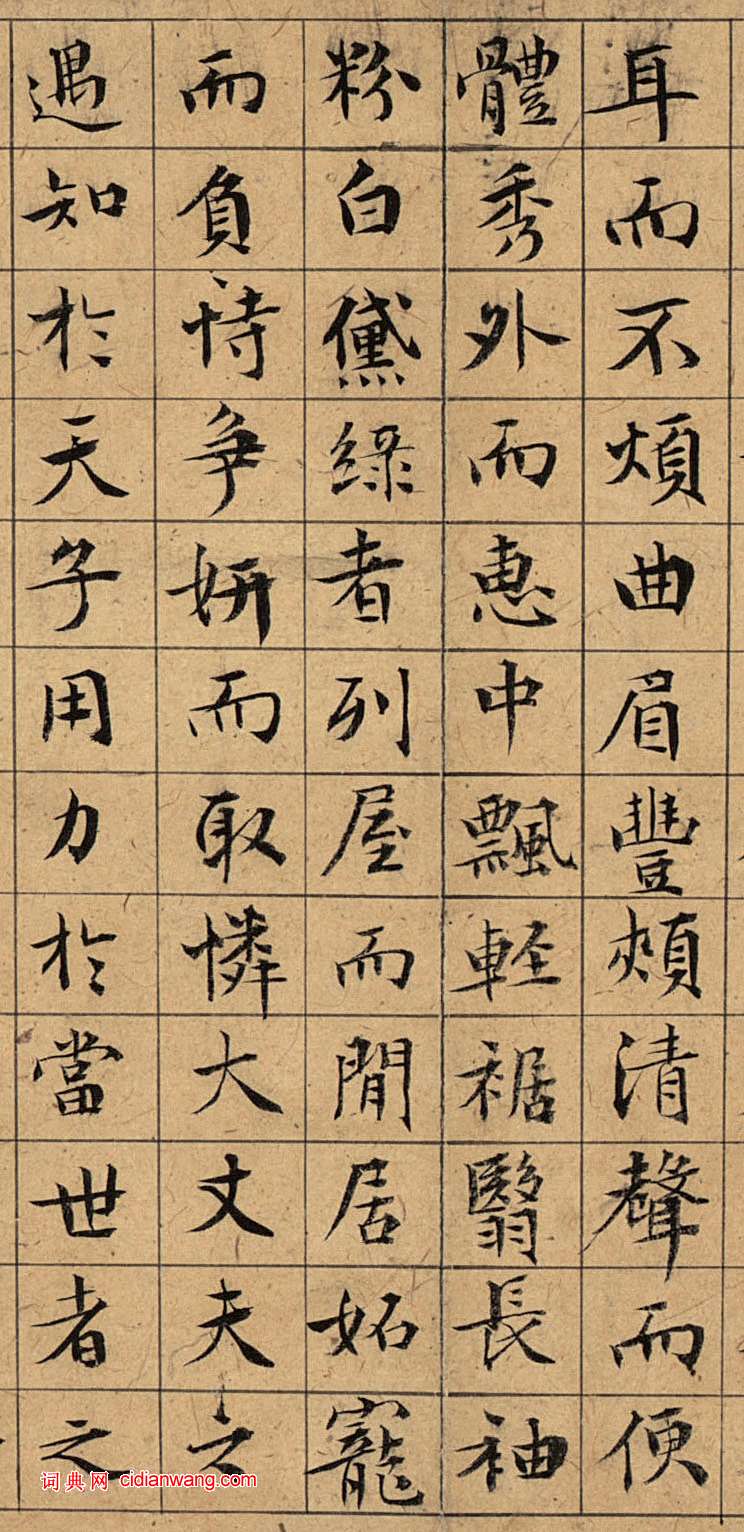 耳而不煩曲眉豐頰清聲而便
體秀外而惠中飄輕裾翳長袖
粉白黛綠者列屋而閒居妬寵
而負恃爭妍而取憐大丈夫之
遇知於天子用力於當世者之
词典网 cidianwang.com